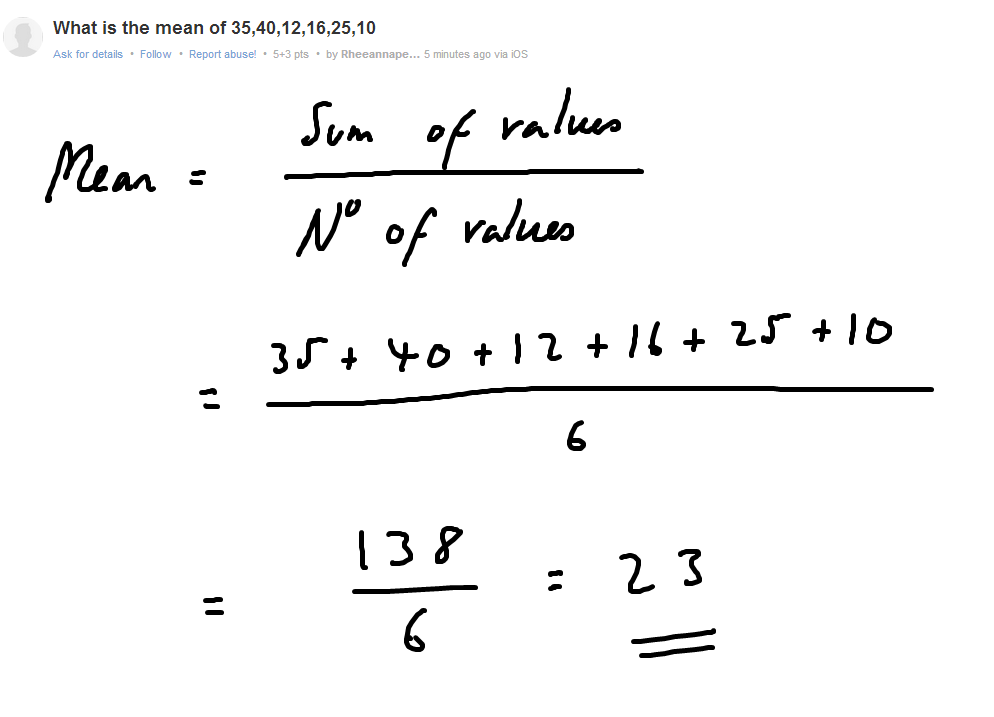 What is the mean of 35,40,12,16,25,10
Ask for details • Follow • Report abuse! • 5+3 pts • by Rheeannape... 5 minutes ago via iOS
Sum of values
Mean =
Nº of values
35 + 40 + 12 + 16 + 25 + 10
=
6
138
= = 23
6